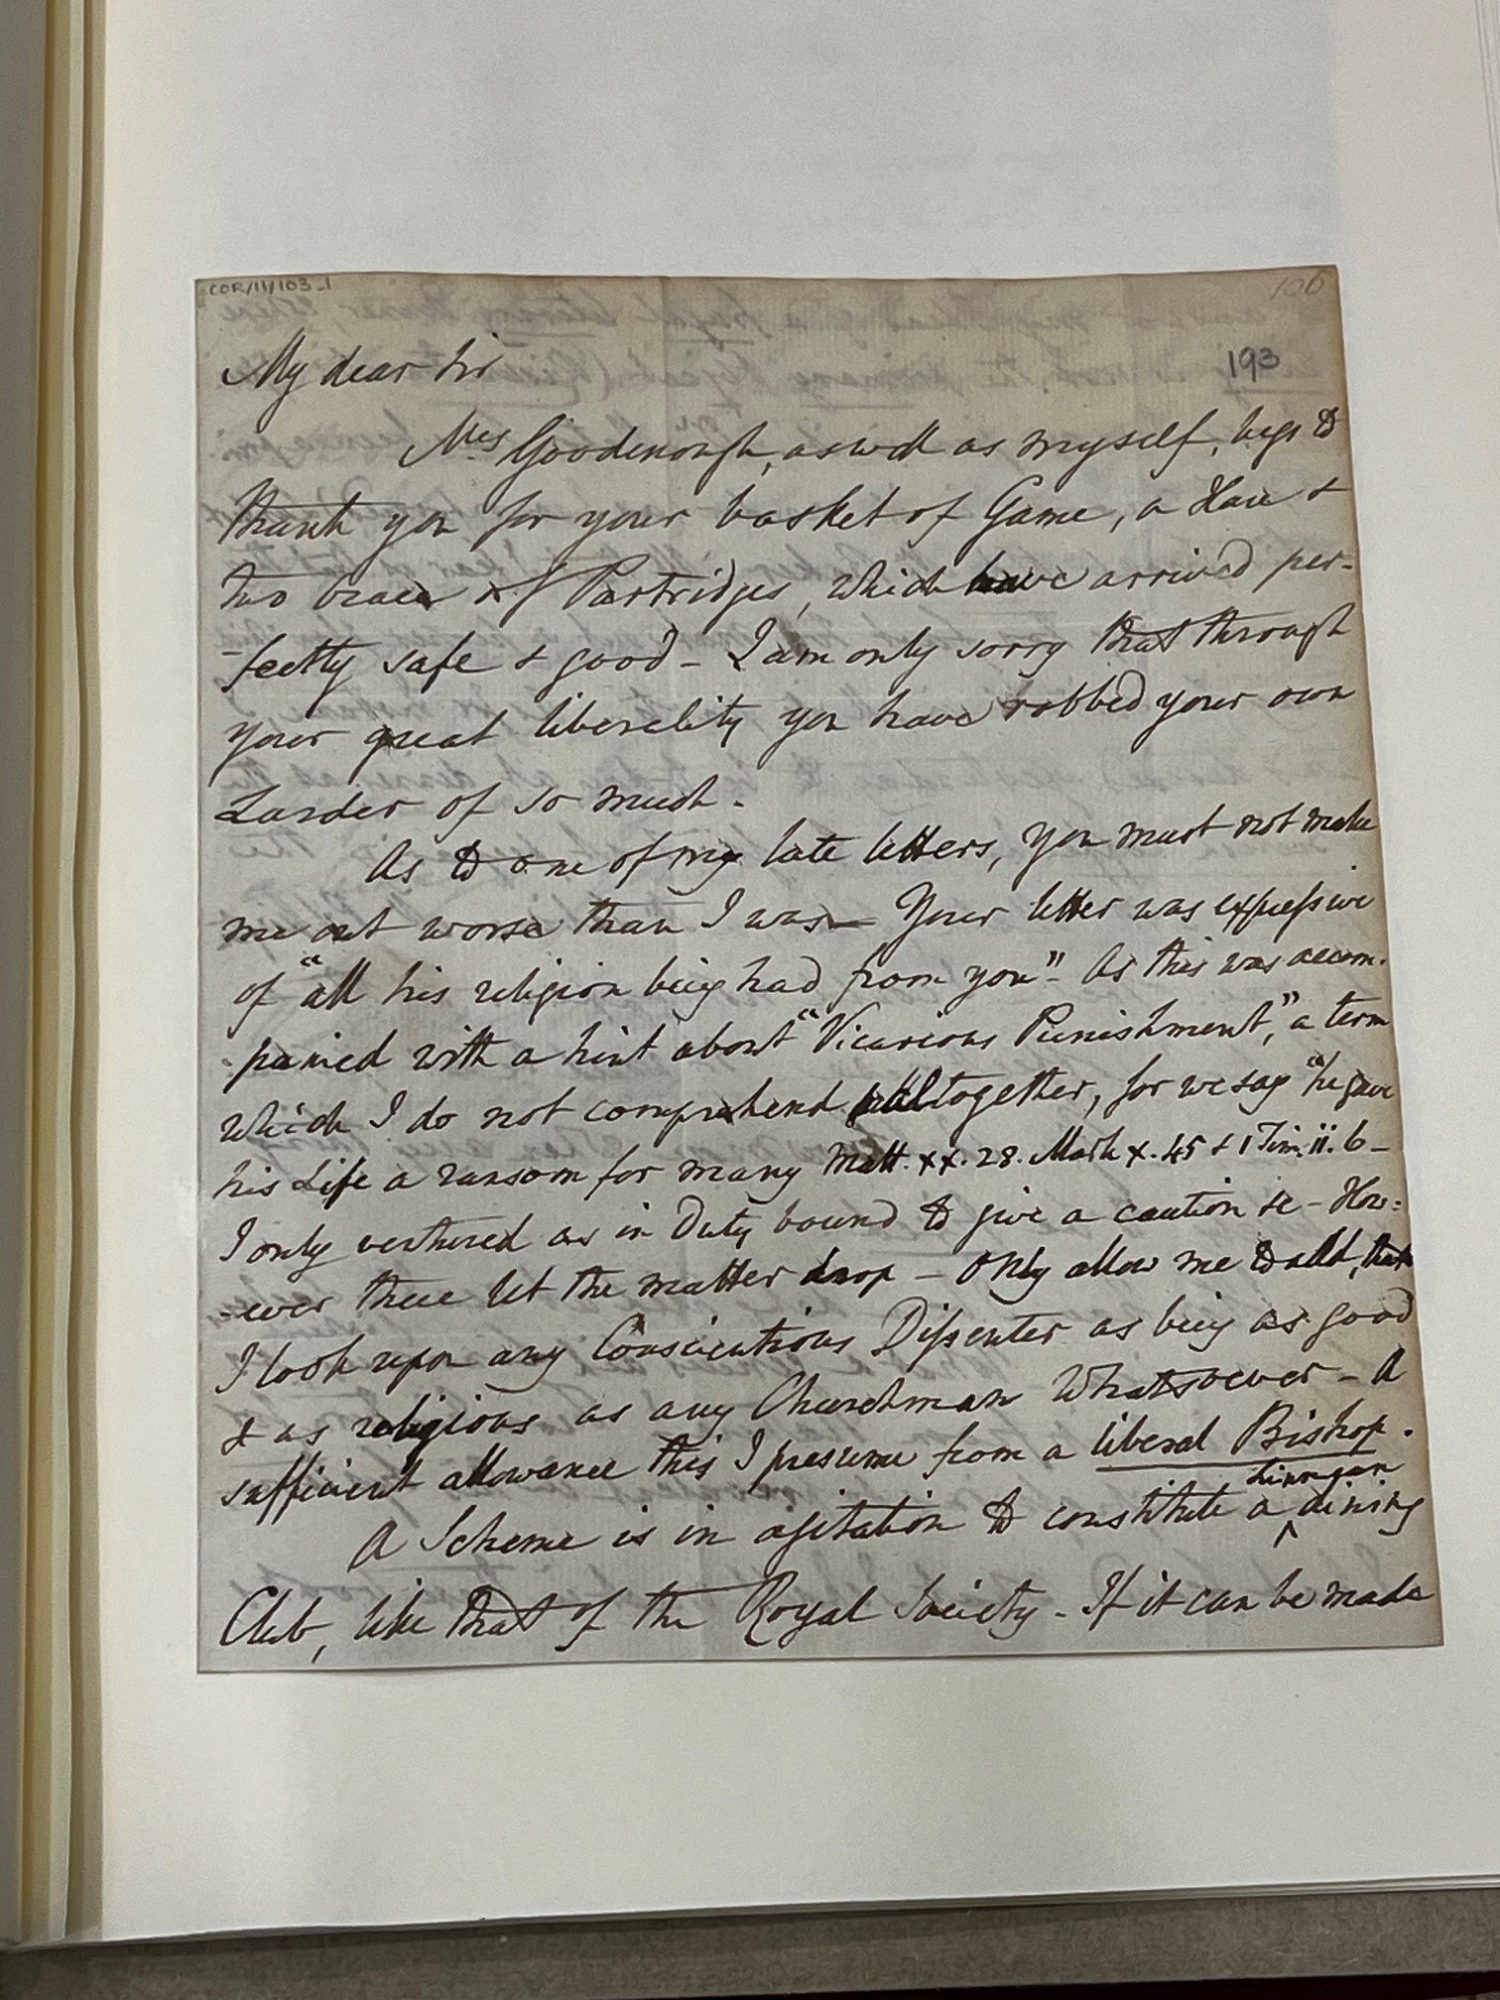 COR/11/103_1
106
193
My dear Sir
Mrs Goodenough, as well as myself, begs to
thank you for your basket of Game, a Hare &
two brace of Partridges, which have arrived per-
-fectly safe & good - I am only sorry that through
your great liberality you have robbed your own
Larder of so much.
As to one of my late letters, you must not make
me out worse than I was - Your letter was expressive
of "all his religion being had from you" - As this was accom-
-panied with a hint about "Vicarious Punishment," a term
which I do not comprehend altogether, for we say "he gave
his Life a ransom for many Matt. xx. 28. Mark x. 45 & 1 Tim. ii. 6 -
I only ventured as in Duty bound to give a caution &c - How=
-ever there let the matter drop - Only allow me to add, that
I look upon any Conscientious Dissenter as being as good
& as religious as any Churchman whatsoever - A
sufficient allowance this I presume from a liberal Bishop.
Linnæan
A Scheme is in agitation to constitute a ^ dining
Club, like that of the Royal Society - If it can be made